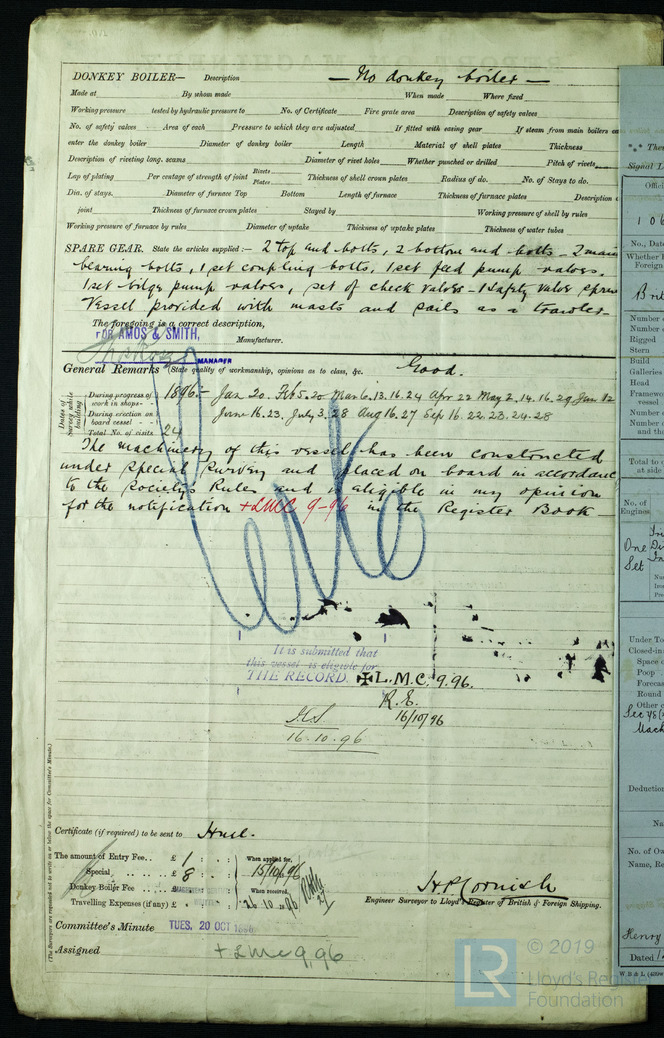 DONKEY BOILER— Description — No donkey boiler —
Made at By whom made When made Where fixed
Working pressure tested by hydraulic pressure to No. of Certificate Fire grate area Description of safety valves
No. of safety valves Area of each Pressure to which they are adjusted If fitted with easing gear If steam from main boilers ca
enter the donkey boiler Diameter of donkey boiler Length Material of shell plates Thickness
Description of riveting long. seams Diameter of rivet holes Whether punched or drilled Pitch of rivets
Lap of plating Per centage of strength of joint Rivets Plates Thickness of shell crown plates Radius of do. No. of Stays to do.
Dia. of stays. Diameter of furnace Top Bottom Length of furnace Thickness of furnace plates Description o
joint Thickness of furnace crown plates Stayed by Working pressure of shell by rules
Working pressure of furnace by rules Diameter of uptake Thickness of uptake plates Thickness of water tubes
SPARE GEAR. State the articles supplied :— 2 top end bolts, 2 bottom end bolts – 2 main
bearing bolts, 1 set coupling bolts, 1 set feed pump valves,
1 set bilge pump valves, set of check valves – 1 safety valve spring
Vessel provided with masts and sails as a trawler –
The foregoing is a correct description,
FOR AMOS & SMITH,
Manufacturer.
MANAGER
General Remarks (State quality of workmanship, opinions as to class, &c. Good.
Dates of Survey while building
During progress of work in shops - - 1896:- Jan 20. Feb 5. 20 Mar 6. 13. 16. 24 Apr 22 May 2. 14. 16. 29 Jun 12
During erection on board vessel - - June 16. 23, July 3. 28 Aug 16. 27 Sep 16. 22. 23. 24. 28
Total No. of visits 24
The machinery of this vessel has been constructed
under special survey and placed on board in accordance
to the Society's Rules and is eligible in my opinion
for the notification +LMC 9-96 in the Register Book
It is submitted that
this vessel is eligible for
THE RECORD. ✠L.M.C. 9.96.
R.E.
16/10/96
16.10.96
(The Surveyors are requested not to write on or below the space for Committee's Minute.)
Certificate (if required) to be sent to Hull.
The amount of Entry Fee.. £ 1 : : When applied for,
Special .. £ 8 : : 15/10/96
Donkey Boiler Fee .. £ : : When received,
Travelling Expenses (if any) £ : : 26.10.96
H P Cornish
Engineer Surveyor to Lloyd's Register of British & Foreign Shipping.
Committee's Minute TUES. 20 OCT 1896
Assigned + LMC 9,96
Signal L
Offici
106
No., Date
Whether B
Foreign
Brit
Number o
Number o
Rigged
Stern
Build
Galleries
Head
Framewo
vessel
Number o
Number o
and the
Total to
at side
No. of
Engines
One
Set
Under To
Closed-in
Space o
Poop
Forecas
Round
Other c
Mach
Deductio
Na
No. of Ow
Name, Re
Henry
Dated
© 2019
LR
Lloyd's Register
Foundation